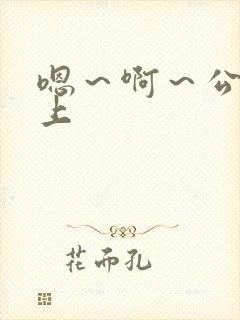 嗯～啊～公
上
花而孔